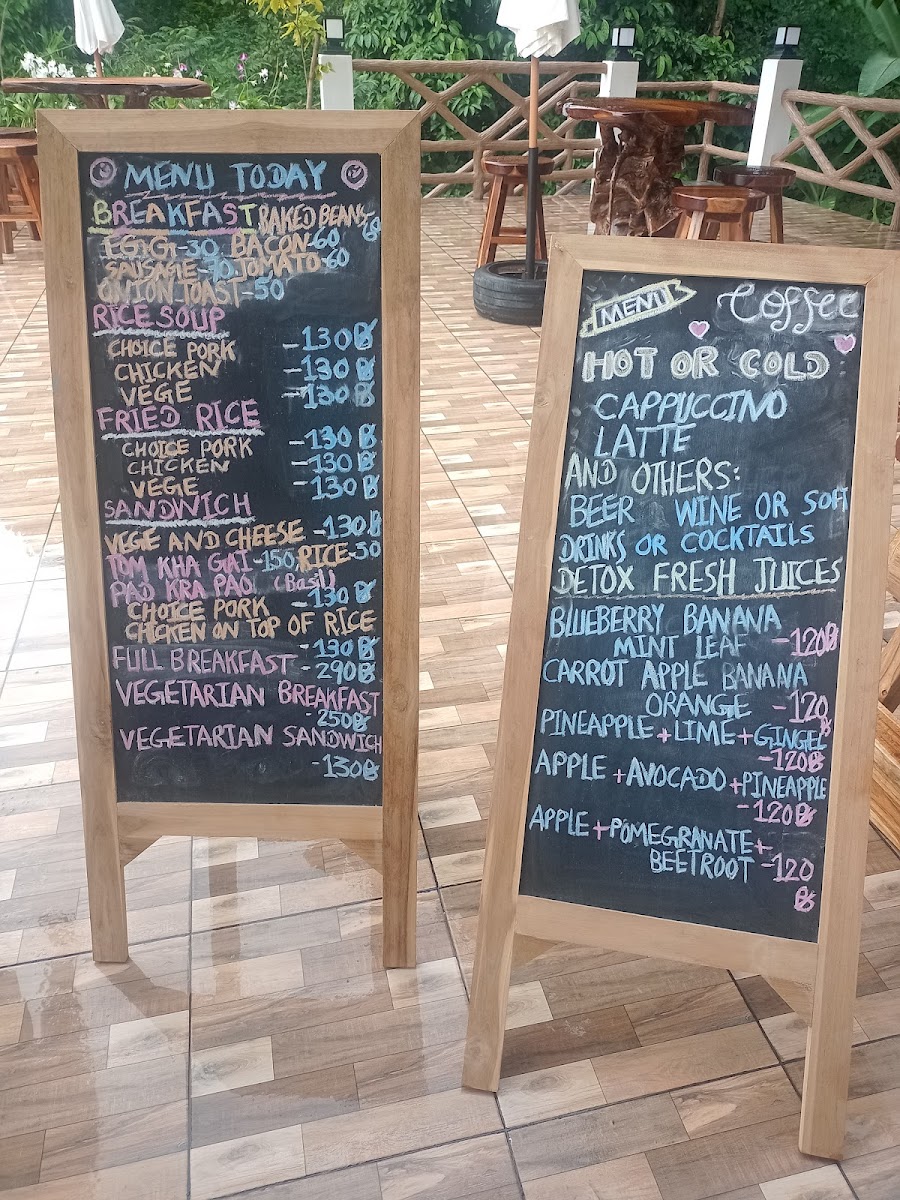 MENU TODAY
BREAKFAST BAKED BEANS
60
EGG-30 BACON-60
SAUSAGE-70 TOMATO-60
ONION TOAST-50
RICE SOUP
CHOICE PORK -130฿
CHICKEN -130฿
VEGE -130฿
FRIED RICE
CHOICE PORK -130฿
CHICKEN -130฿
VEGE -130฿
SANDWICH
VEGE AND CHEESE -130฿
TOM KHA GAI-150, RICE-30
PAD KRA PAO (Basil)
CHOICE PORK -130฿
CHICKEN ON TOP OF RICE
-130฿
FULL BREAKFAST -290฿
VEGETARIAN BREAKFAST
-250฿
VEGETARIAN SANDWICH
-130฿
MENU Coffee
HOT OR COLD
CAPPUCCINO
LATTE
AND OTHERS:
BEER WINE OR SOFT
DRINKS OR COCKTAILS
DETOX FRESH JUICES
BLUEBERRY BANANA
MINT LEAF -120฿
CARROT APPLE BANANA
ORANGE -120
฿
PINEAPPLE+LIME+GINGEL
-120฿
APPLE +AVOCADO+PINEAPPLE
-120฿
APPLE+POMEGRANATE+
BEETROOT -120
฿